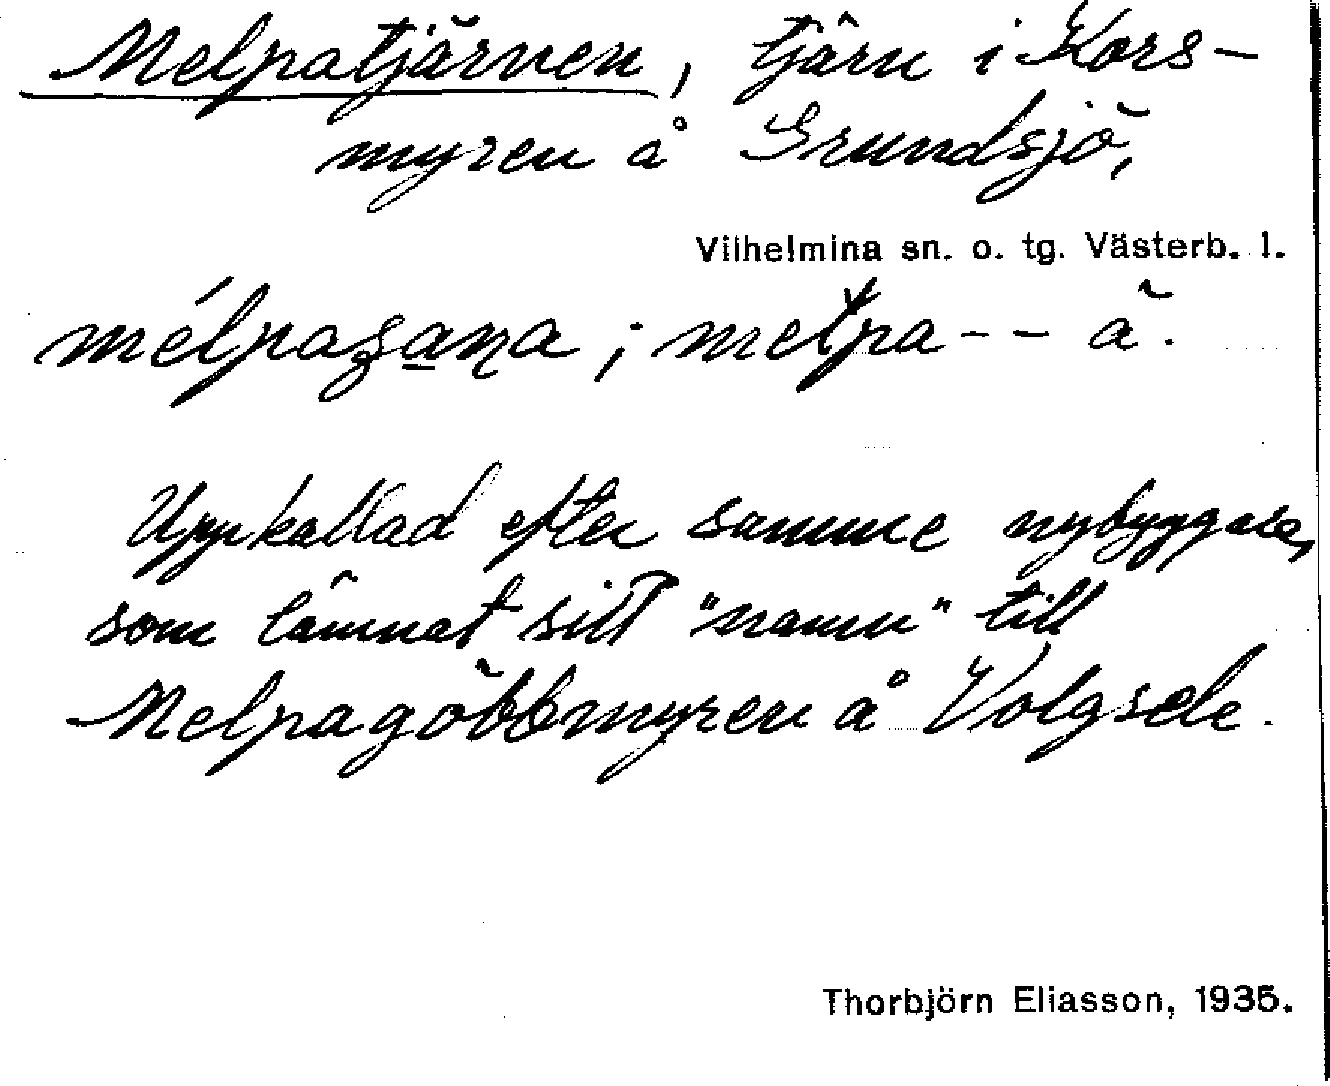 Melpatjärnen, tjärn i Kors-
myren å Grundsjö,
Vilhelmina sn. o. tg. Västerb. l.
; melpa -- ä.
Uppkallad efter samme nybyggare,
som lämnat sitt "namn" till
Melpagöbbmyren å Volgsele.
Thorbjörn Eliasson, 1935.